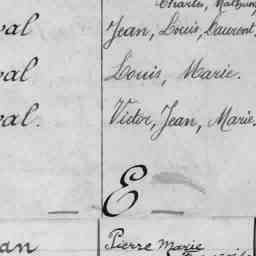 Charles, Mathurin
val Jean, Louis, Laurent.
val Louis, Marie.
val. Victor, Jean, Marie.
E
an Pierre Marie